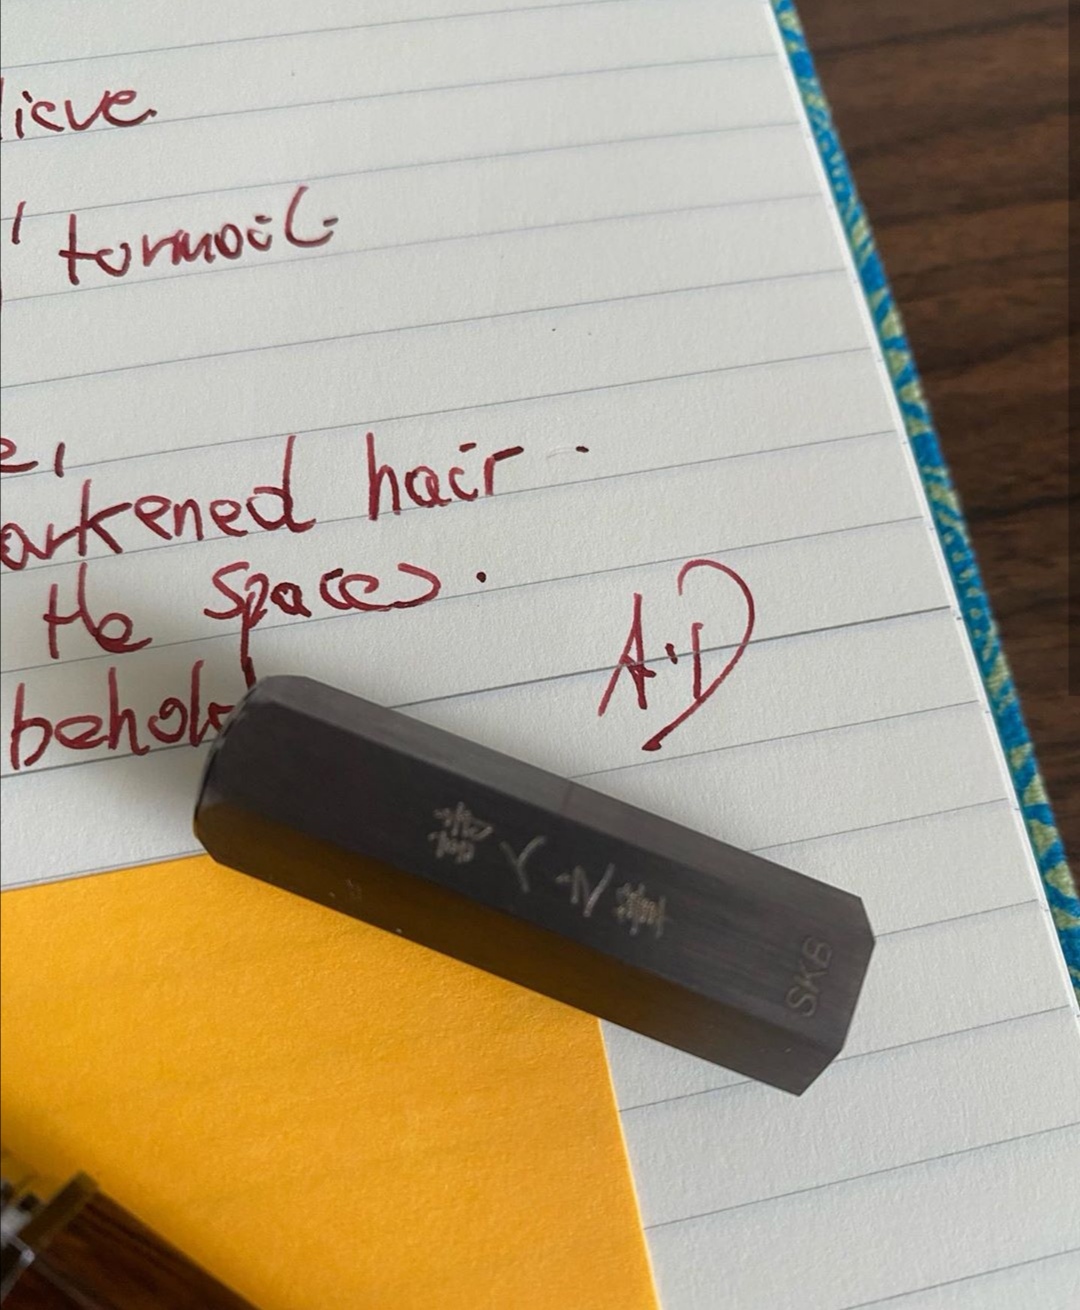 lieve
turmoil
e,
arkened hair.
the spaces.
behold
A.D
人之
SKB